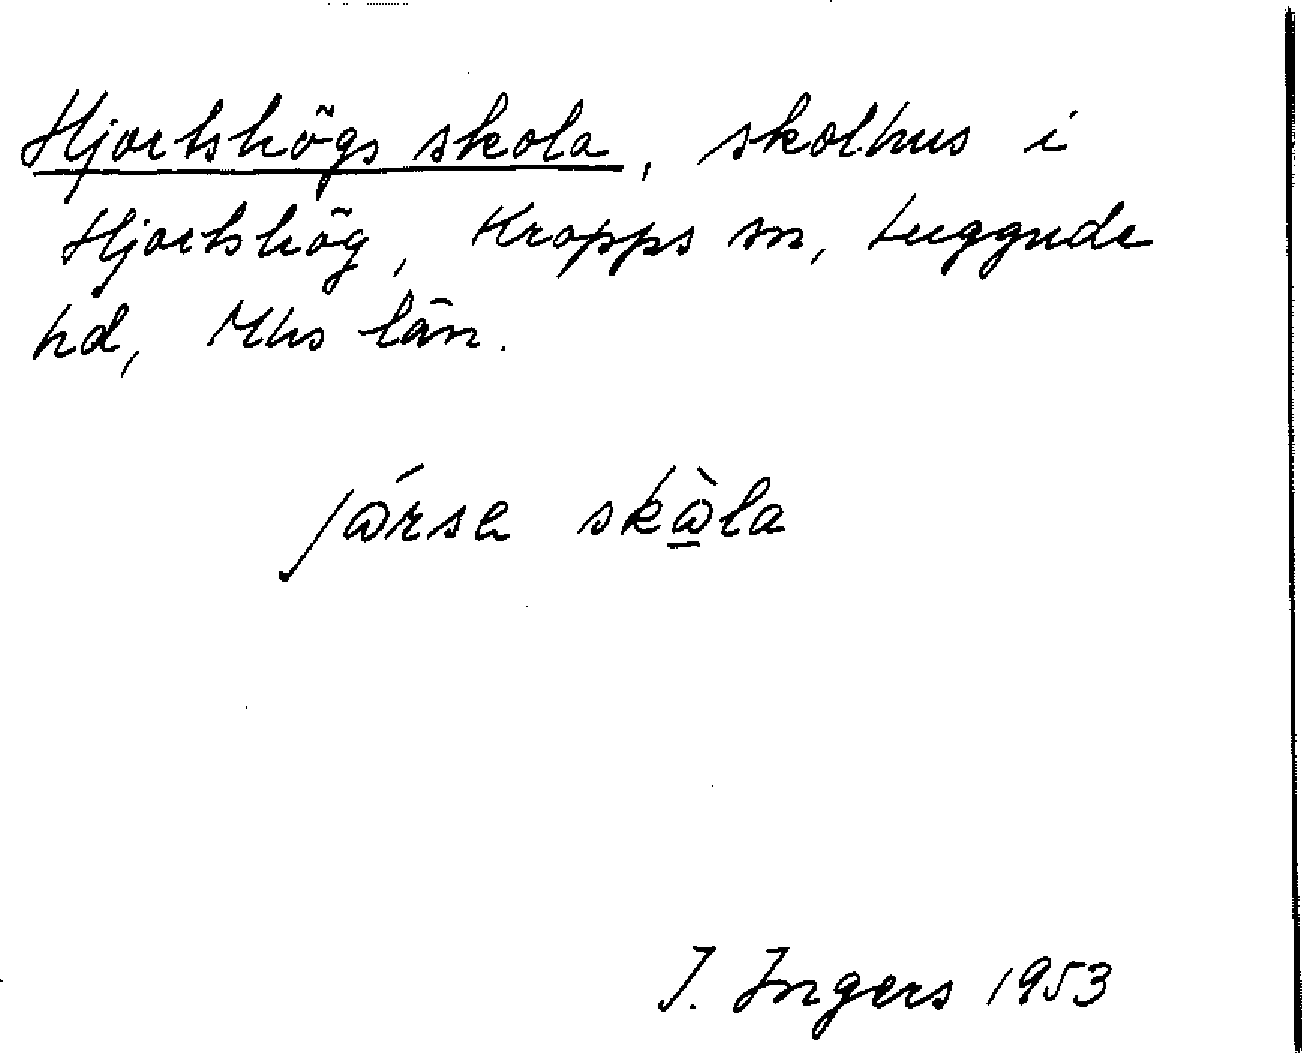 Hjortshögs skola, skolhus i
Hjortshög, Kropps sn, Luggude
hd, Mhs län.
jǿrse skѡ̀la
I. Ingers 1953